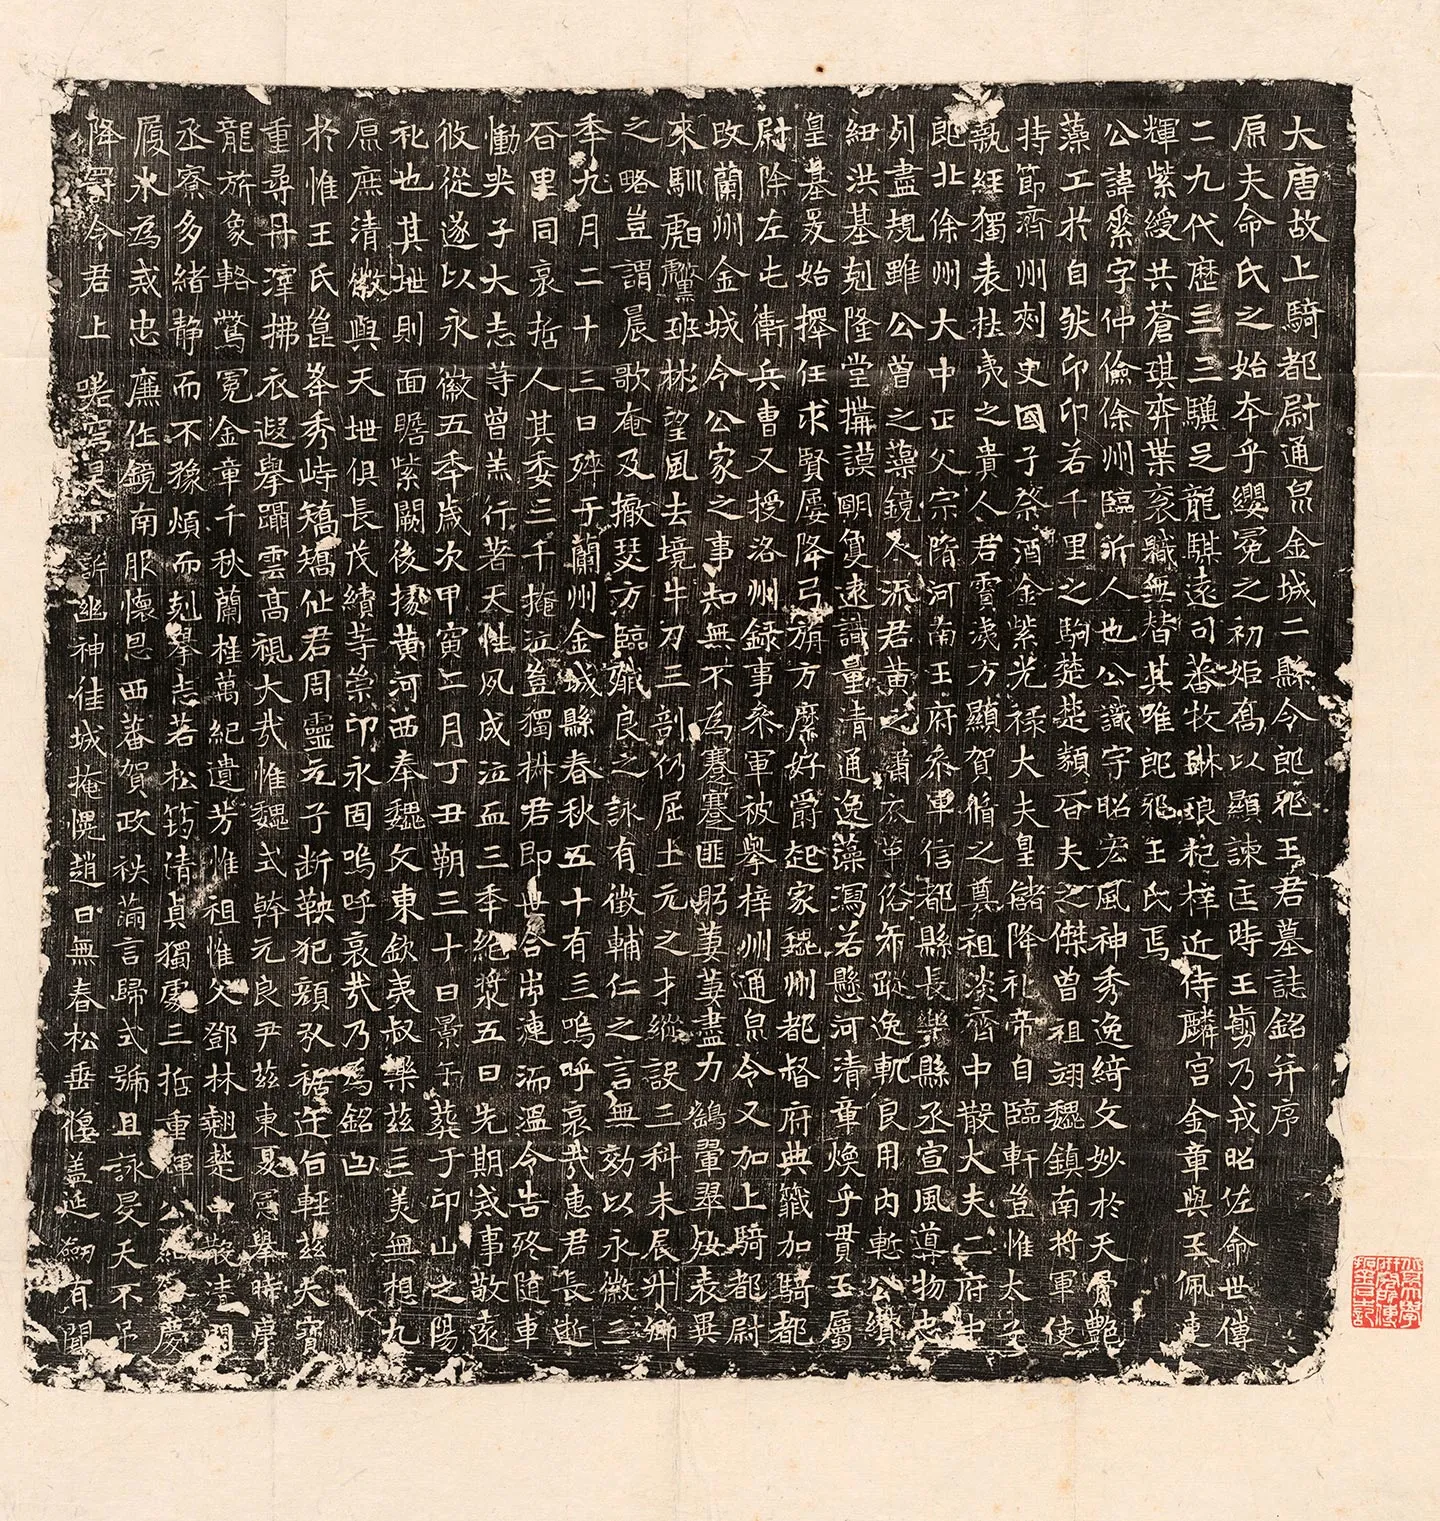 大唐故上騎都尉通泉金城二縣令瑯琊王君墓誌銘并序
原夫命氏之始本乎纓冕之初姬喬以顯諫匡時王翦乃戎昭佐命世傳
二九代歷三三驥足龍騏遠司蕃牧琳琅杞梓近侍麟宮金章與玉佩連
輝紫綬共蒼琪弈葉袞職無替其唯瑯琊王氏焉
公諱綮字仲儉徐州臨沂人也公識宇昭宏風神秀逸綺文妙於天骨艷
藻工於自然卬卬若千里之駒楚楚類百夫之傑曾祖翊魏鎮南將軍使
持節齊州刺史國子祭酒金紫光祿大夫皇儲降礼帝自臨軒豈惟太子
執經獨表桂夷之貴人君雩淚方顯賀循之奠祖淡齊中散大夫二府中
郎北徐州大中正父宗隋河南王府參軍信都縣長樂縣丞宣風導物忠
列盡規雖公曾之藻鏡人流君黃之肅衣單俗布蹤逸軌良用內慙公纘
紐洪基剋隆堂搆謨明夐遠識量清通逸藻瀉若懸河清章煥乎貫玉屬
皇基爰始擇任求賢屢降弓旌方縻好爵起家魏州都督府典籤加騎都
尉除左屯衛兵曹又授洛州錄事參軍被舉梓州通泉令又加上騎都尉
改蘭州金城令公家之事知無不為蹇蹇匪躬萋萋盡力鷁翬翠如表異
來馴虨班彬望風去境牛刀三剖仍屈士元之才縱設三科未展升卿
之略豈謂晨歌奄及撤瑟方臨殲良之詠有徵輔仁之言無効以永徽三
季九月二十三日殞于蘭州金城縣春秋五十有三嗚呼哀哉惠君長逝
百里同哀哲人其委三千掩泣豈獨桝君即世合帝漣洏溫令告終随車
慟哭子大志等曾羔行著天性夙成泣血三季絕漿五日先期戒事敬遠
攸從遂以永徽五季歲次甲寅二月丁丑朔三十日景午葬于卬山之陽
礼也其地則面瞻紫闕後據黃河西奉魏文東欽夷叔樂茲三美無想九
原庶清徽與天地俱長茂績等崇卬永固嗚呼哀哉乃為銘曰
於惟王氏崑峯秀峙矯矯仙君周靈元子斷鞅犯顏弘裾迕旨輕茲尺寶
重尋丹澤拂衣遐舉躡雲高視大哉惟魏式幹元良尹茲東夏冕舉時康
龍旂象輅鷩冕金章千秋蘭桂萬紀遺芳惟祖惟父鄧林翹楚中散清
丞寮多緒靜而不豫煩而剋舉志若松筠清貞獨處二哲重輝公慶
履氷為戒忠廉作鏡南服懷恩西蕃賀政袟滿言歸式號且詠旻天不弔
降令君上嗟下訴幽神佳城掩愰趙日無春松垂偃盖延劒有聞